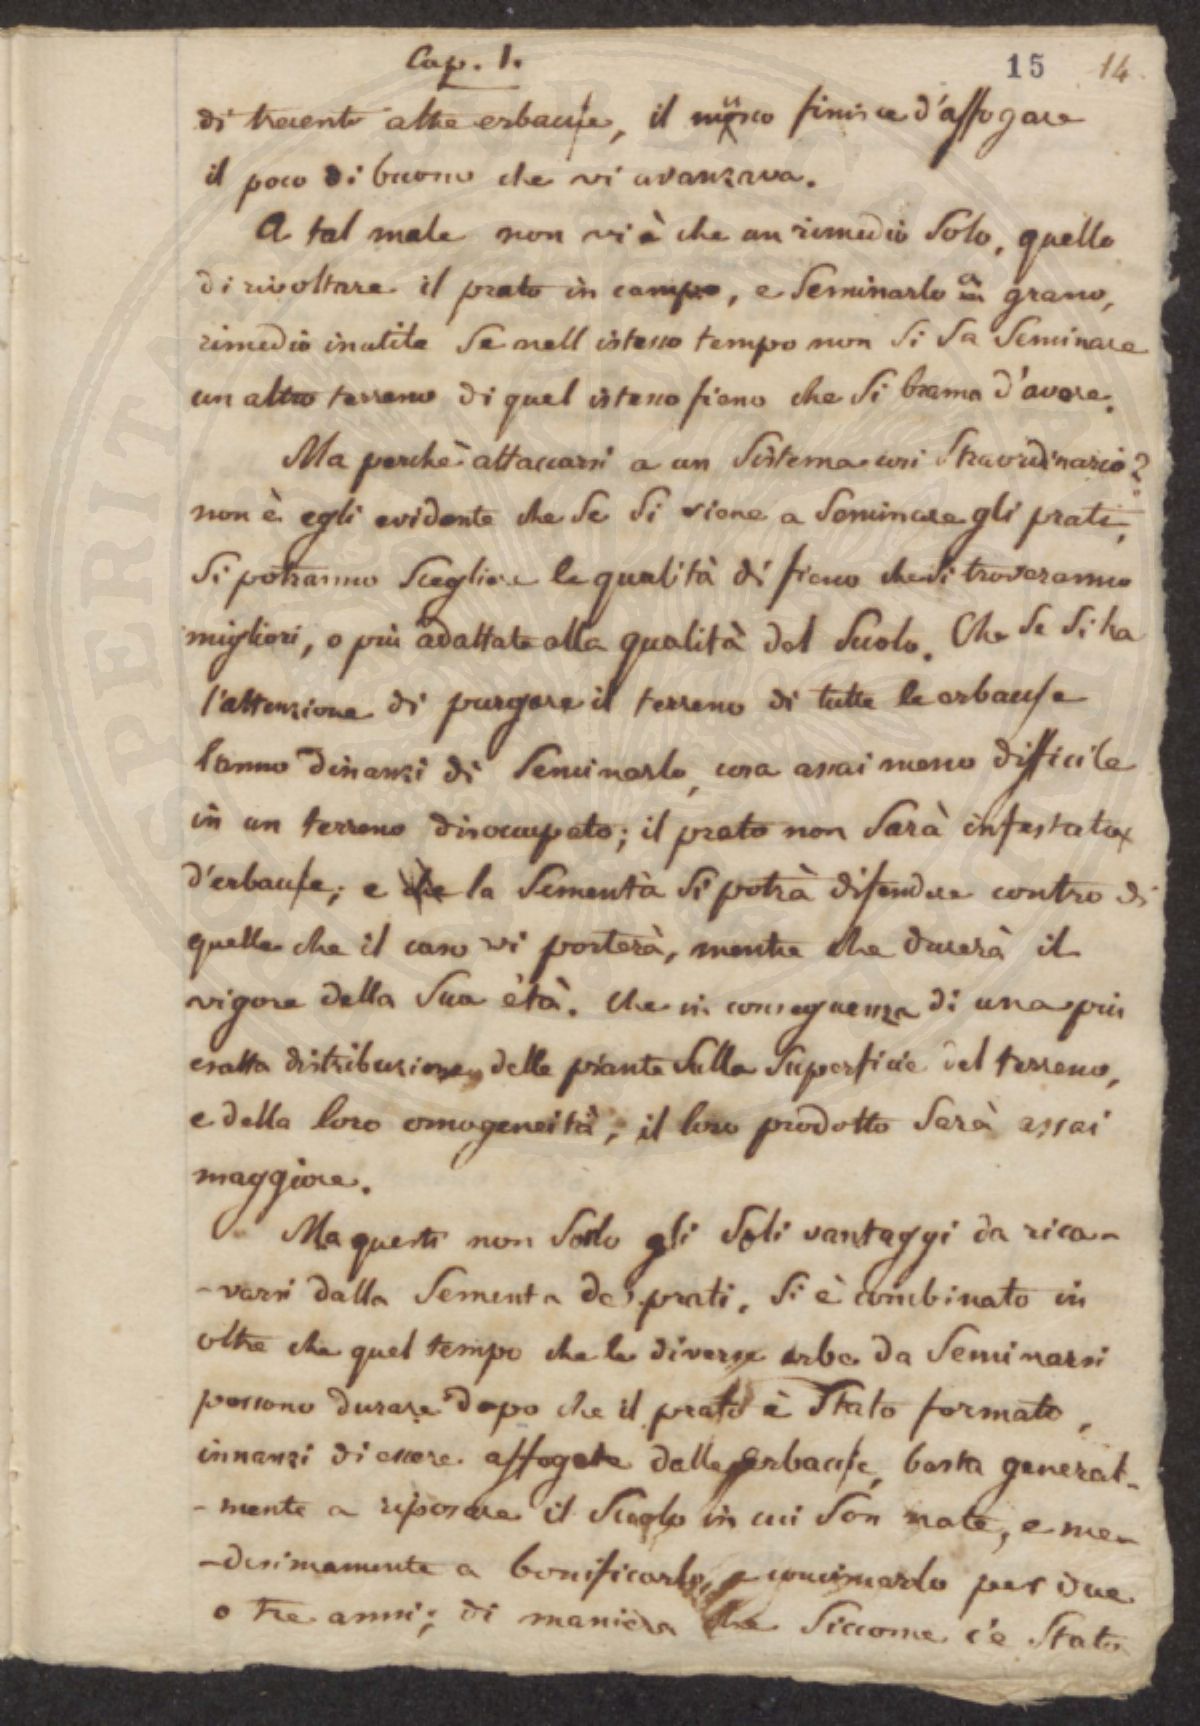 Cap. I.
15 14
di trecente altre erbacise, il musco finisce d'affogare
il poco di buono che vi avanzava.
A tal male non vi è che un rimedio Solo, quello
di rivoltare il prato in campo, e Seminarlo a grano,
rimedio inutile Se nell istesso tempo non Si Sa Seminare
un altro terreno di quel istesso fieno che Si brama d'avere.
Ma perchè attaccarsi a un Sistema cosi Straordinario?
non è egli evidente che Se Si viene a Seminare gli prati,
Si potranno Scegliere le qualità di fieno che Si troveranno
migliori, o più adattate alla qualità del Suolo. Che Se Si ha
l'attenzione di purgare il terreno di tutte le erbacise
l'anno dinanzi di Seminarlo, cosa assai meno difficile
in un terreno disoccupato; il prato non Sarà infestato
d'erbacise; e che la Sementà Si potrà difendere contro di
quelle che il caso vi porterà, mentre che durerà il
vigore della Sua età. Che in conseguenza di una più
esatta distribuzione delle piante Sulla Superficie del terreno,
e della loro omogeneità, il loro prodotto Sarà assai
maggiore.
Ma questi non Sono gli Soli vantaggi da rica-
-varsi dalla Sementa de prati. Si è combinato in
oltre che quel tempo che le diverse erbe da Seminarsi
possono durare dopo che il prato è Stato formato,
innanzi di essere affogate dalle erbacise, basta general-
-mente a riposare il Suolo in cui Son nate, e me-
-desimamente a bonificarlo, e concimarlo per due
o tre anni; di maniera che Siccome c'è Stato